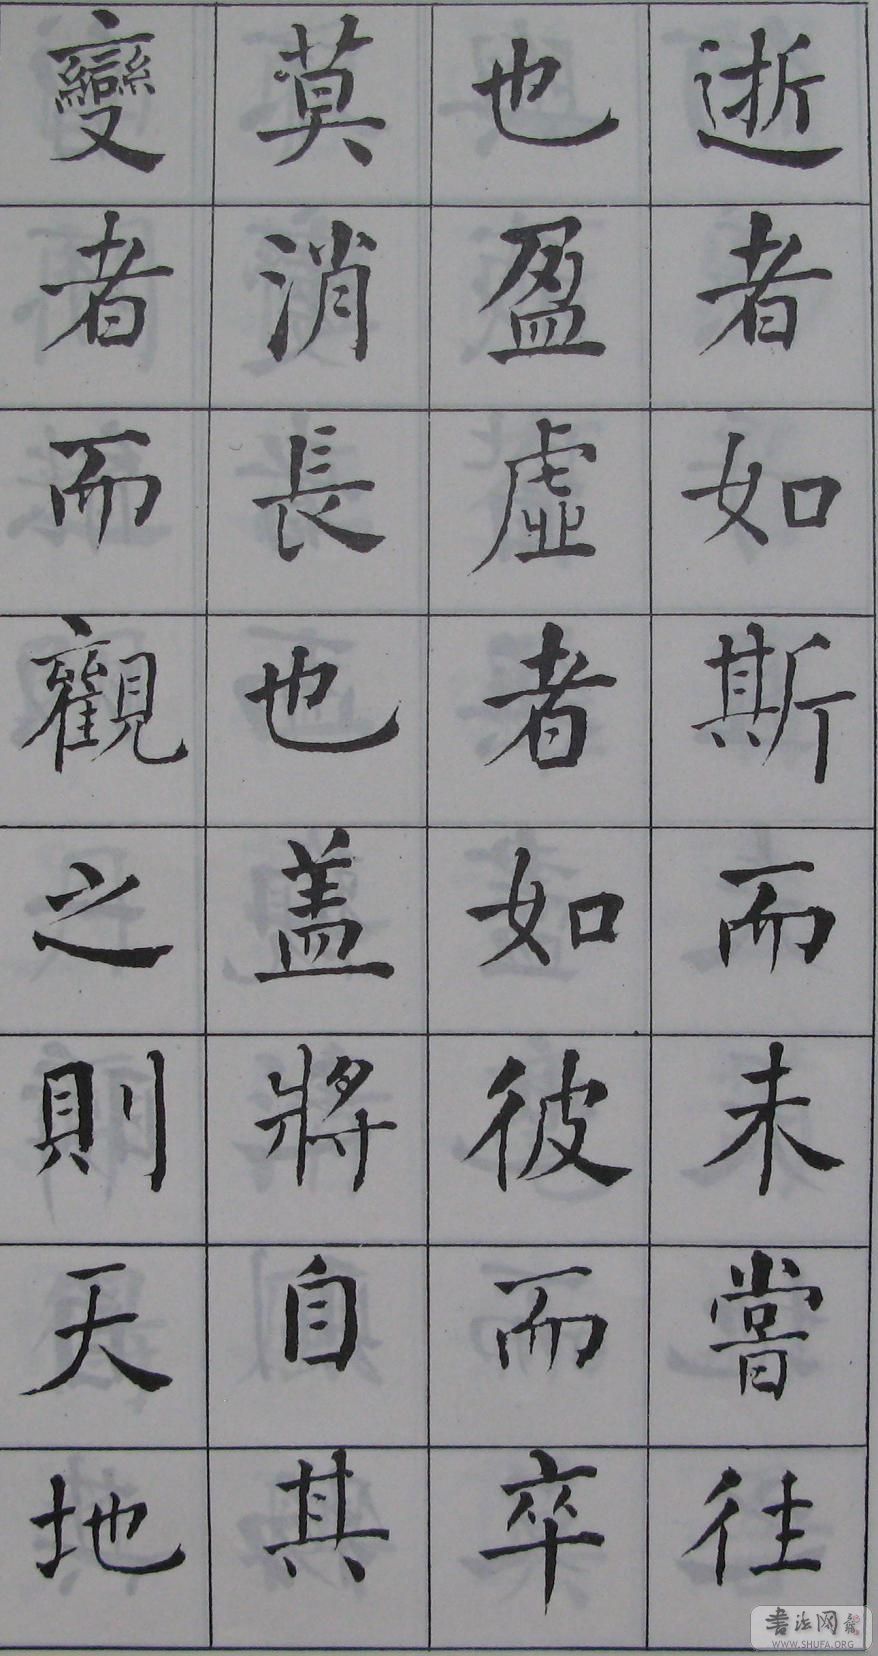 逝者如斯而未嘗往
也盈虛者如彼而卒
莫消長也盖將自其
變者而觀之則天地
書法网
WWW.SHUFA.ORG